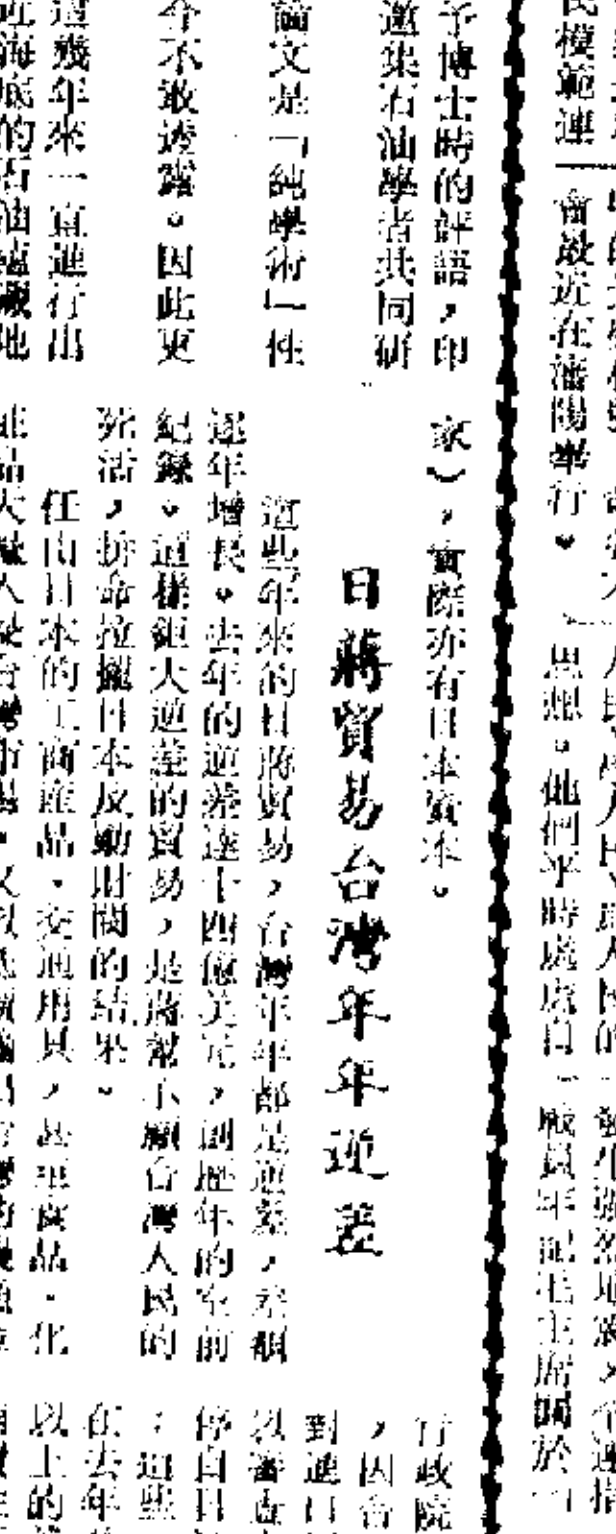 民模範連
會最近在瀋陽舉行。
思想。他們平時處處自
職員牢記毛主席關於「
予博士時的評語，印
邀集石油學者共同研
論文是「純學術」性
今不敢透露。因此更
這幾年來一直進行出
近海底的石油蘊藏地
家），實際亦有日本資本。
日蔣貿易台灣年年逆差
這些年來的日蔣貿易，台灣年年都是逆差，差額
逐年增長。去年的逆差達十四億美元，創歷年的空前
紀錄。這樣鉅大逆差的貿易，是蔣幫不顧台灣人民的
死活，拚命拉攏日本反動財閥的結果。
任由日本的工商產品、交通用具，甚至食品、化
行政院
，因台
對進口
以審查
停自日
；這些
在去年
以上的